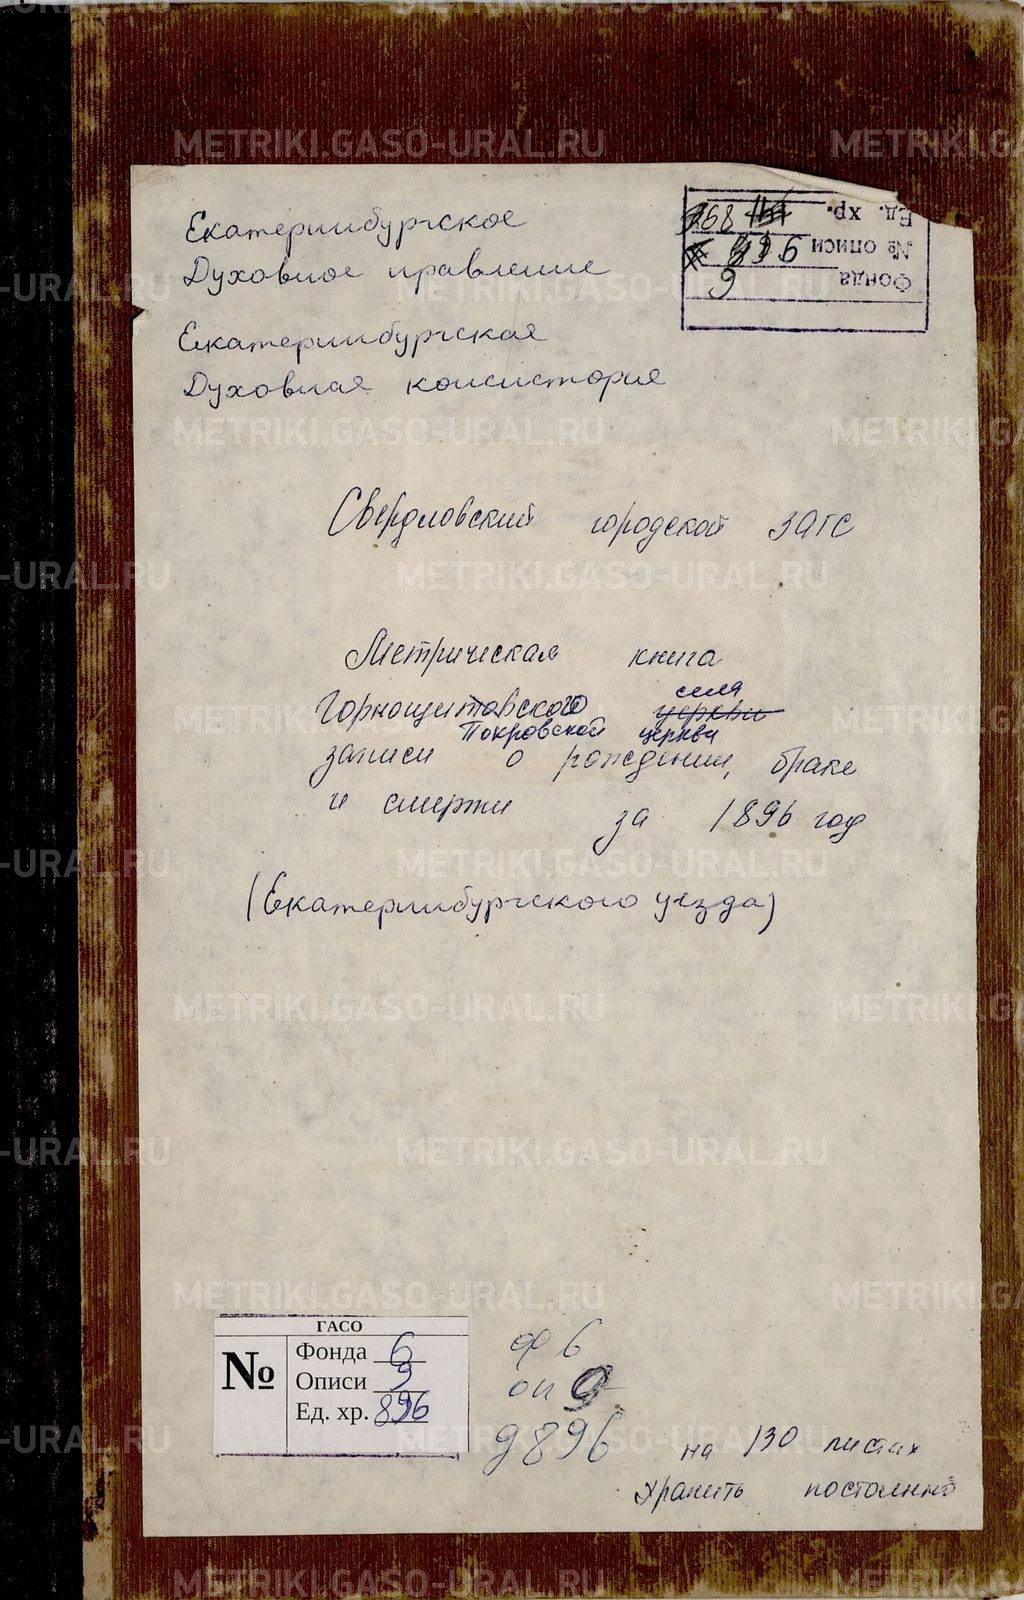 Екатеринбургское
Духовное правление
Екатеринбургская
Духовная консистория
Ед. хр. 168
№ описи
Фонда
Свердловский городской ЗАГС
Метрическая книга
Горнощитовского церкви села
Покровской церкви
записи о рождении, браке
и смерти за 1896 год
(Екатеринбургского уезда)
ГАСО
№
Фонда 6
Описи 9
Ед. хр. 896
ф 6
оп 9
д 896
на 130 листах
хранить постоянно
METRIKI.GASO-URAL.RU